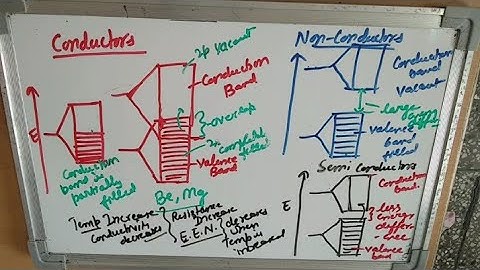 Conductors
2p vacant
Conduction
Band
overlap
2s completely
filled
Valence Band
E
Conduction
band is
partially
filled
Be, Mg
Temp Increase
conductivity
decreases
Resistance
increase
E.E.N. decreases
when
temp is
increased
Non-Conductors
Conduction
band
vacant
large
valence
band
filled
Semi Conductors
E
Conduction
Band.
less
energy
differ-
ence
valence
band